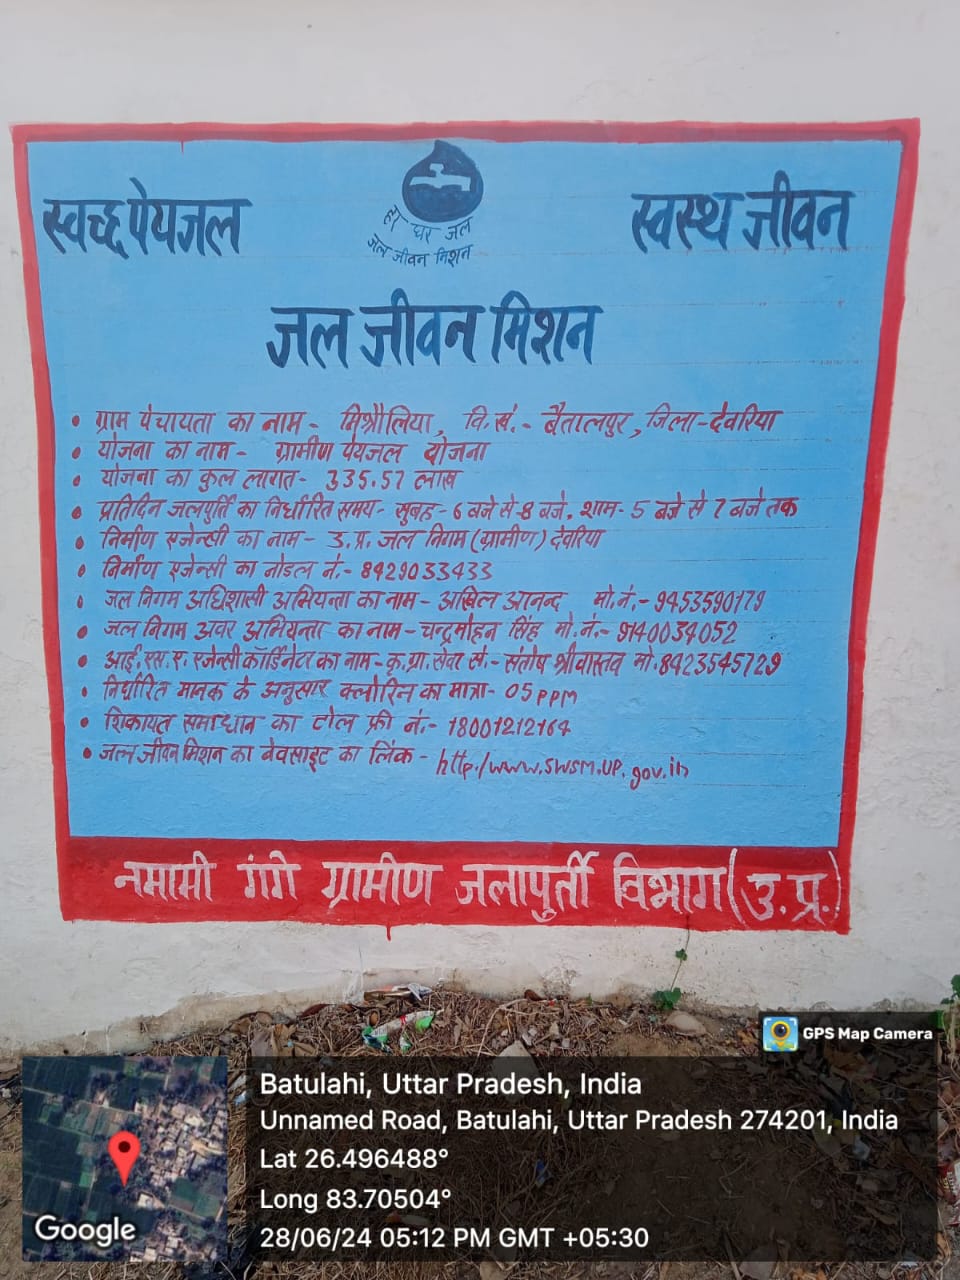 स्वच्छ पेयजल
स्वस्थ जीवन
हर घर जल
जल जीवन मिशन
जल जीवन मिशन
• ग्राम पंचायता का नाम - मिश्रौलिया, वि.खं.- बैतालपुर, जिला-देवरिया
• योजना का नाम - ग्रामीण पेयजल योजना
• योजना का कुल लागत - 335.57 लाख
• प्रतिदिन जलपुर्ति का निर्धारित समय - सुबह - 6 बजे से 8 बजे, शाम - 5 बजे से 7 बजे तक
• निर्माण एजेन्सी का नाम - उ.प्र. जल निगम (ग्रामीण) देवरिया
• निर्माण एजेन्सी का नोडल नं.- 8429033433
• जल निगम अधिशासी अभियन्ता का नाम - अखिल आनन्द मो.नं.- 9453590179
• जल निगम अवर अभियन्ता का नाम - चन्द्रमोहन सिंह मो.नं.- 9140034052
• आई.एस.ए. एजेन्सी कॉर्डिनेटर का नाम - कृ.ग्रा.सेवा सं.- संतोष श्रीवास्तव मो. 8423545729
• निर्धारित मानक के अनुसार क्लोरिन का मात्रा - 05 PPM
• शिकायत समाधान का टोल फ्री नं.- 18001212164
• जल जीवन मिशन का वेवसाइट का लिंक - http./www.swsm.up.gov.in
नमामी गंगे ग्रामीण जलापुर्ती विभाग (उ.प्र.)
GPS Map Camera
Batulahi, Uttar Pradesh, India
Unnamed Road, Batulahi, Uttar Pradesh 274201, India
Lat 26.496488°
Long 83.70504°
28/06/24 05:12 PM GMT +05:30
Google